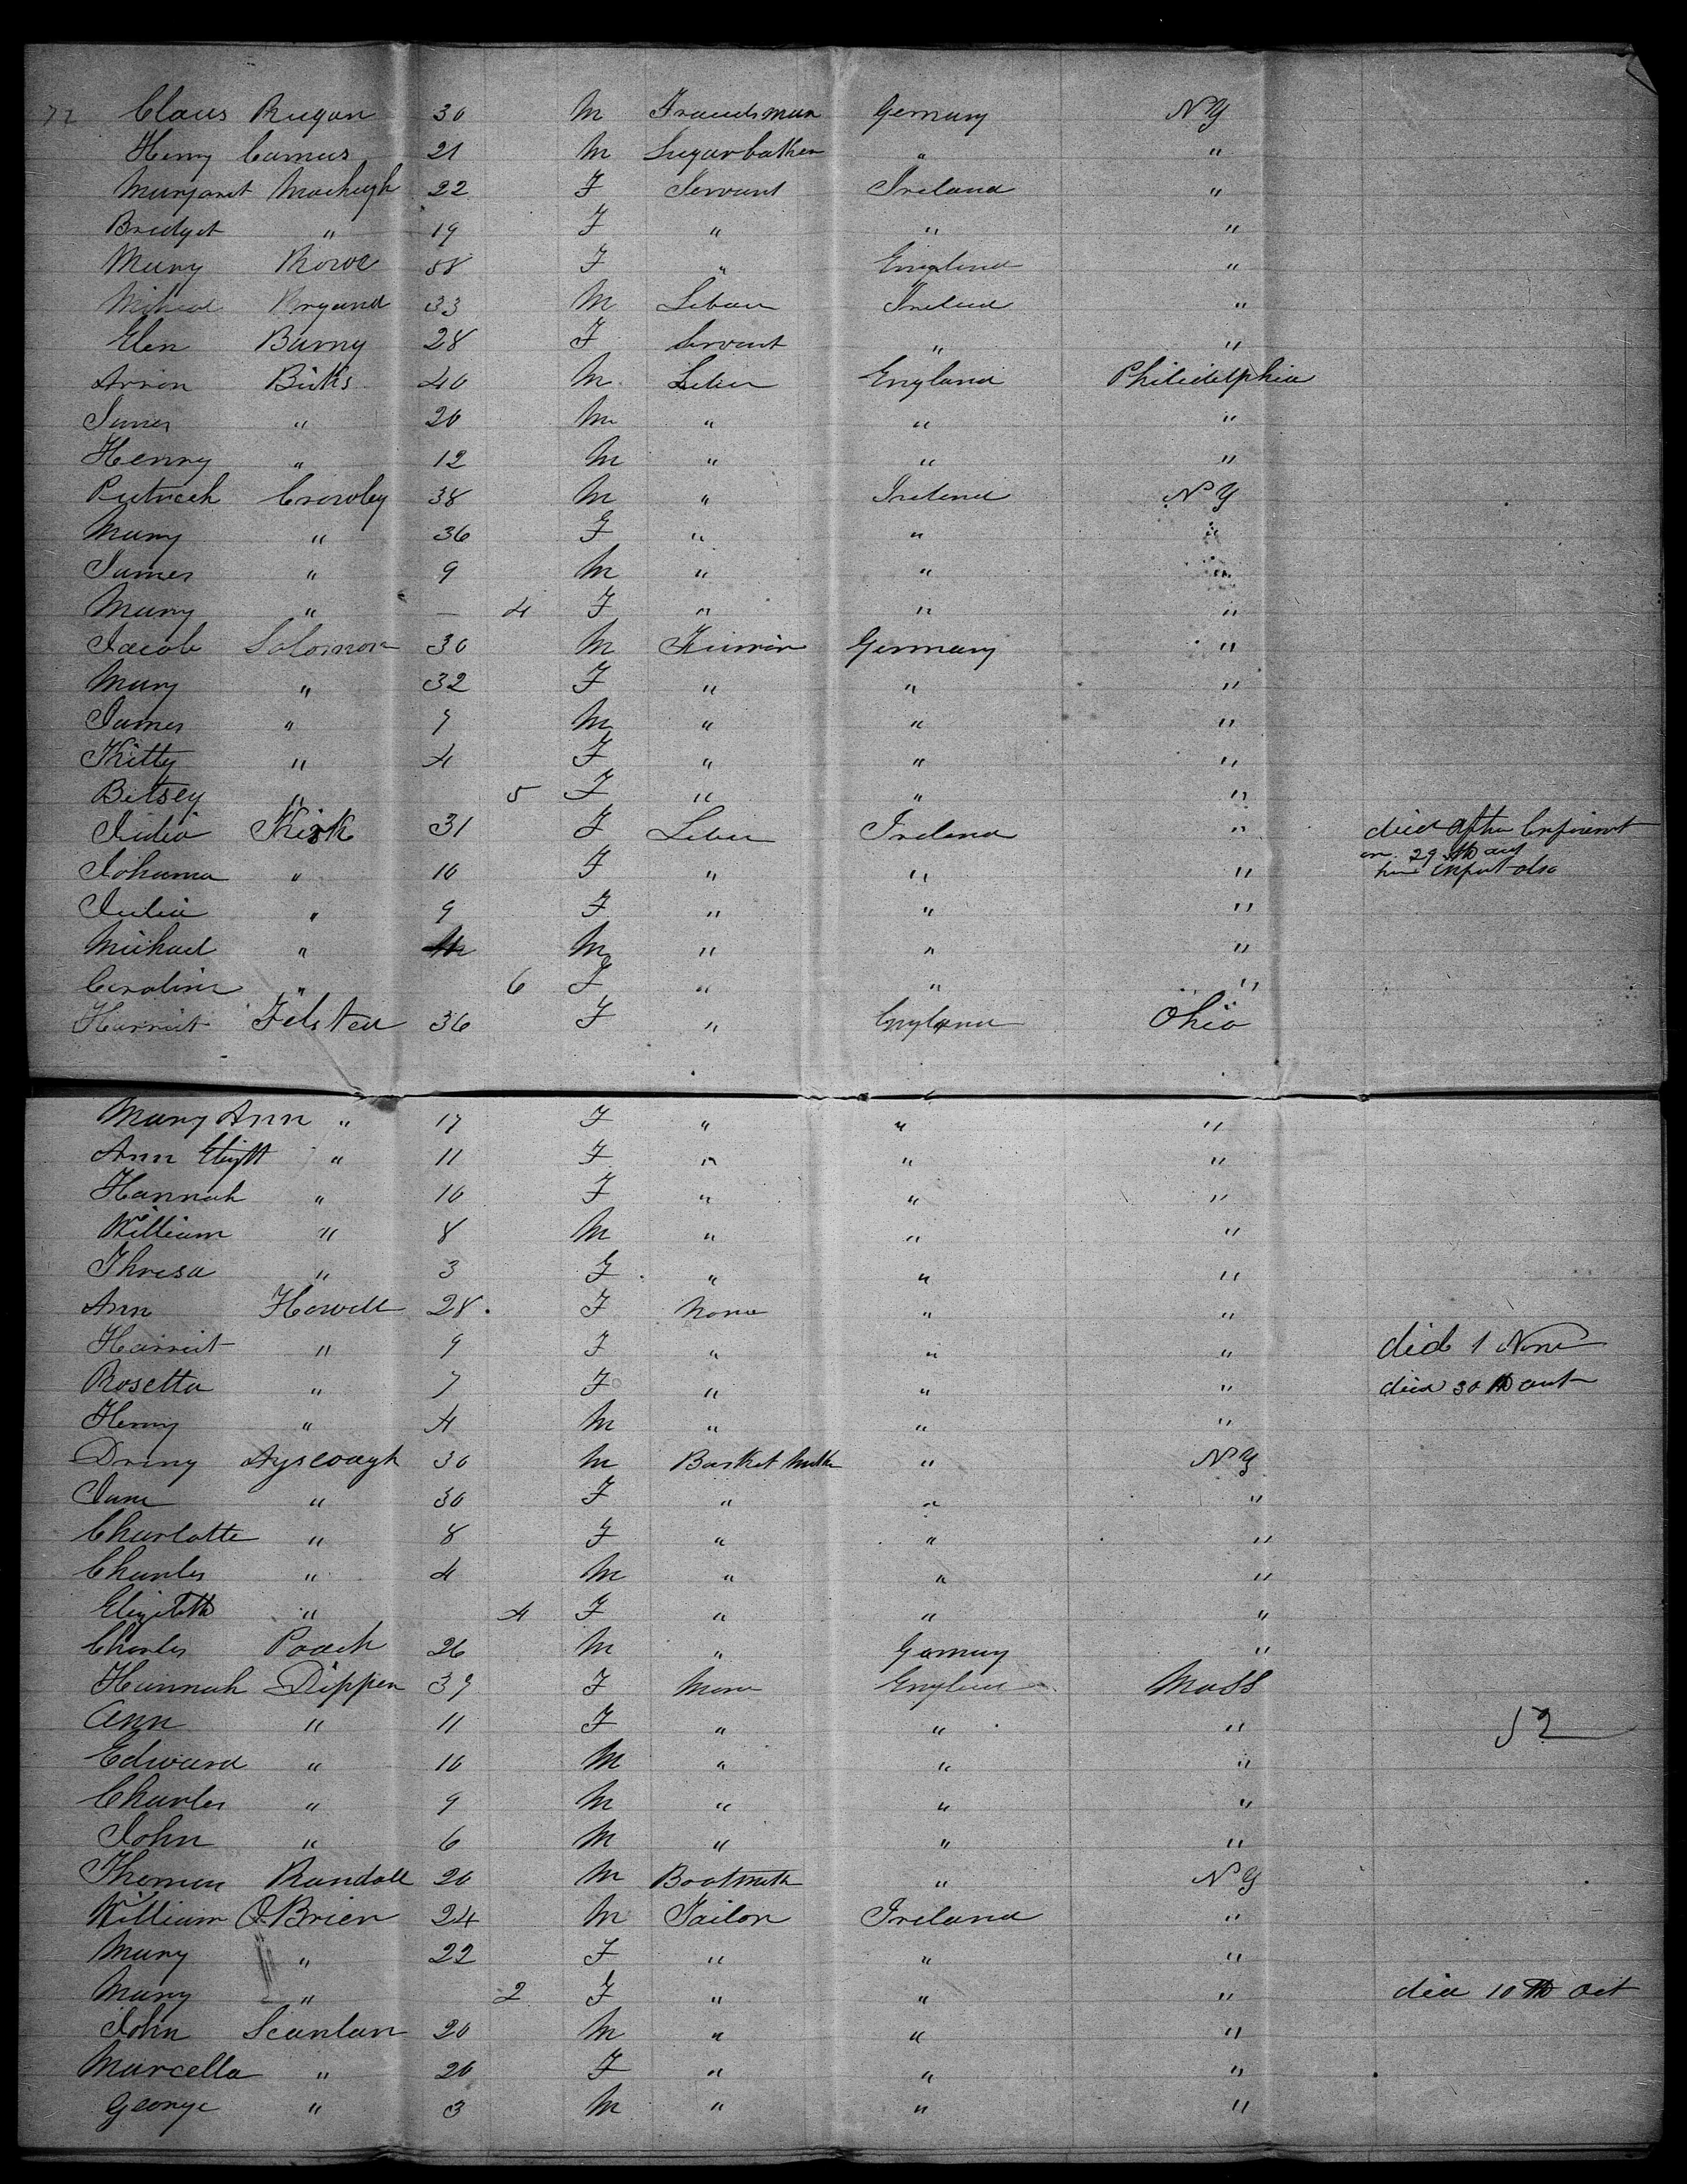 72 Claus Rugan 30 M Tradesman Germany NY
Henry Carnus 21 M Sugarbaker " "
Margaret Machugh 22 F Servant Ireland "
Bridget " 19 F " " "
Mary Rowe 58 F " England "
Micheal Bryand 33 M Labour Ireland "
Elen Barny 28 F Servant " "
Arron Birks 40 M Labur England Philidelphia
James " 20 M " " "
Henry " 12 M " " "
Patrick Crowley 38 M " Ireland NY
Mary " 36 F " " "
James " 9 M " " "
Mary " — 4 F " " "
Jacob Solomon 30 M Germany "
Mary " 32 F " " "
James " 7 M " " "
Kitty " 4 F " " "
Betsey " 5 F " " "
Julia Kirk 31 F Labur Ireland " died after Confinement
on 29th
Johanna " 10 F " " " her infant also
Julia " 9 F " " "
Michael " M " " "
Caroline " 6 F " " "
Harriet Felstea 36 F " England Ohio
Mary Ann " 17 F " " "
Ann Elizth " 11 F " " "
Hannah " 10 F " " "
William " 8 M " " "
Thresa " 3 F " " "
Ann Howell 28 F None " "
Harriet " 9 F " " " died 1 Nove
Rosetta " 7 F " " " died 30th
Henry " 4 M " " "
Drury Ayscough 30 M Basket Maker " NY
Jane " 30 F " " "
Charlotte " 8 F " " "
Charles " 4 M " " "
Elizabeth " 4 F " " "
Charles Poach 26 M " Germany "
Hannah Dippen 39 F None England Mass
Ann " 11 F " " " 52
Edward " 10 M " " "
Charles " 9 M " " "
John " 6 M " " "
Thomas Randall 20 M " NY
William O'Brien 24 M Tailor Ireland "
Mary " 22 F " " "
Mary " 2 F " " " died 10th Oct
John Scanlan 20 M " " "
Marcella " 20 F " " "
George " 3 M " " "